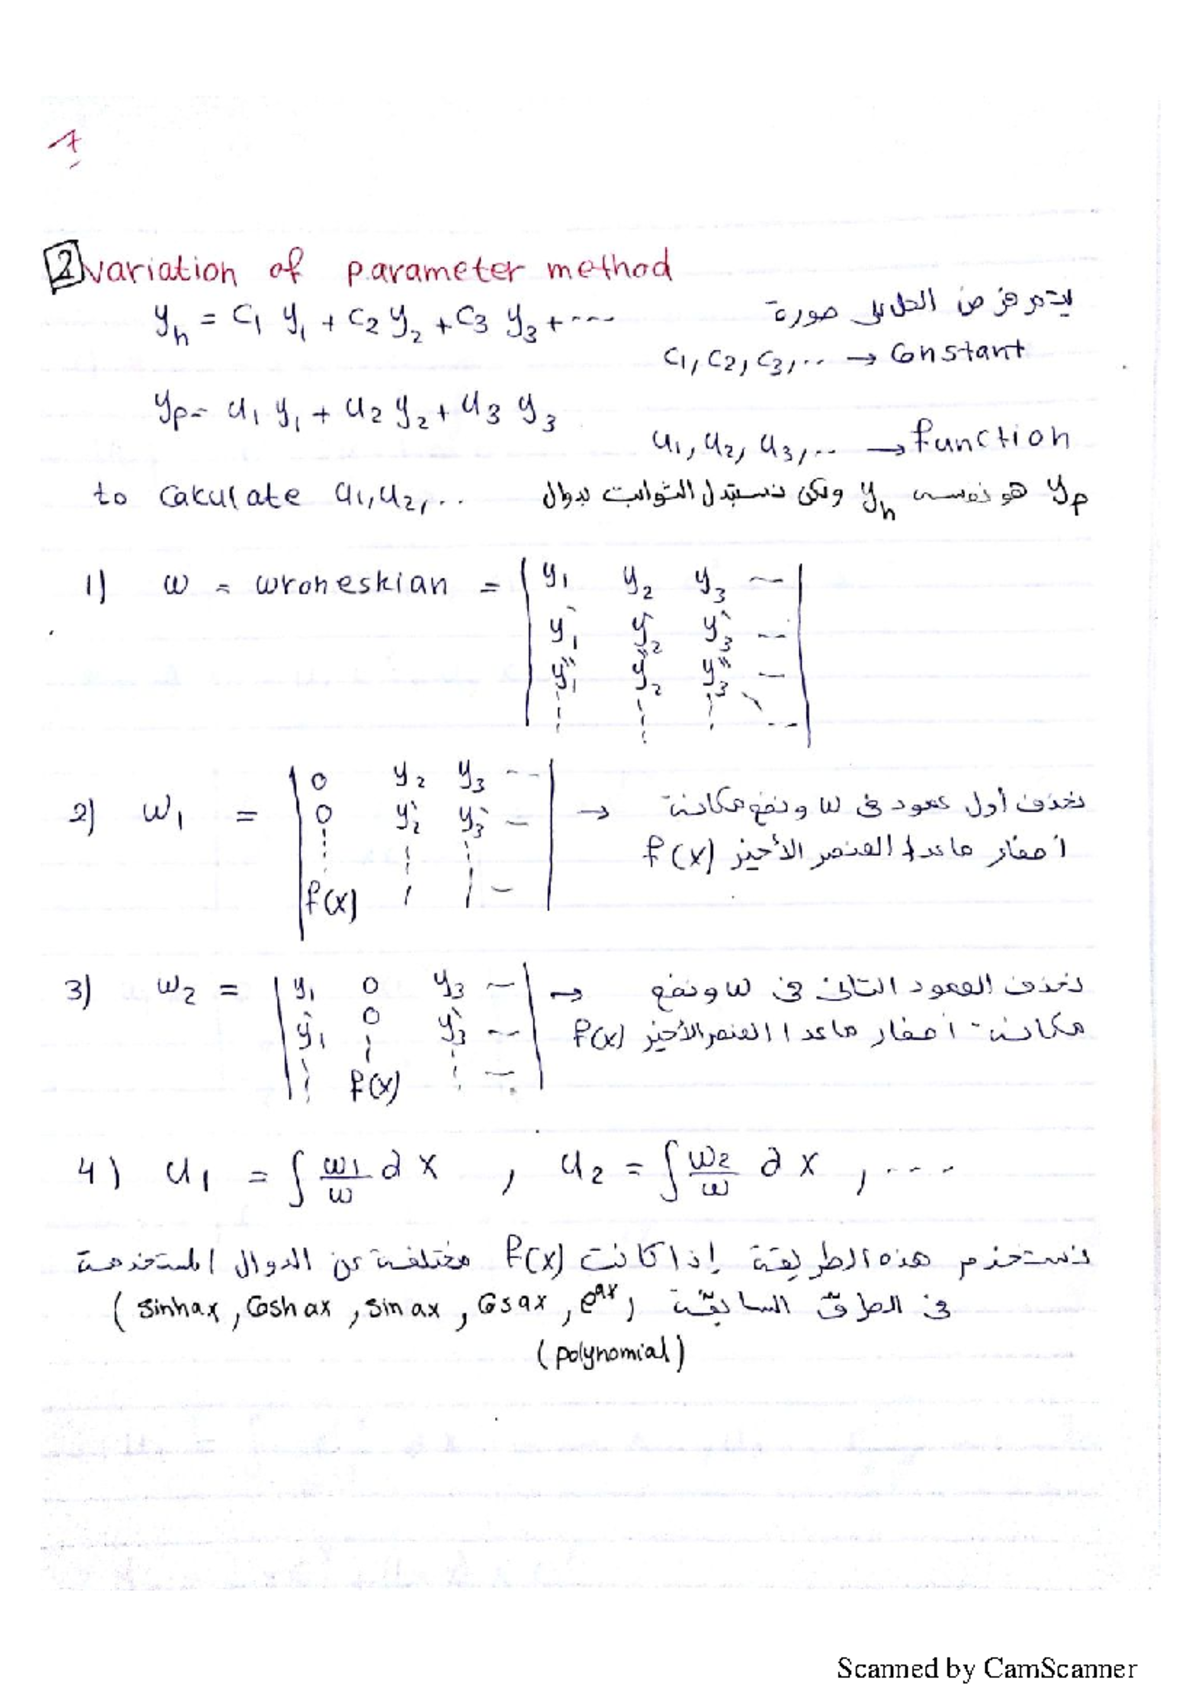 1
2 variation of parameter method
yh = c1 y1 + c2 y2 + c3 y3 + ... يتم فرض الحل على صورة
c1, c2, c3, .. → Constant
yp = u1 y1 + u2 y2 + u3 y3
u1, u2, u3, .. → function
to calculate u1, u2, .. yp هو نفسه yh ولكن نستبدل الثوابت بدوال
1) w = wroneskian = | y1 y2 y3 --- |
| y1` y2` y3` --- |
| y1`` y2`` y3`` --- |
2) w1 = | 0 y2 y3 --- | → نحذف أول عمود فى w ونضع مكانه
| 0 y2` y3` -- | أصفار ماعدا العنصر الأخير f(x)
| f(x) |
3) w2 = | y1 0 y3 -- | → نحذف العمود الثانى فى w ونضع
| y1` 0 y3` --- | مكانه أصفار ماعدا العنصر الأخير f(x)
| f(x) |
4) u1 = ∫ w1/w dx , u2 = ∫ w2/w dx , ....
نستخدم هذه الطريقة إذا كانت f(x) مختلفة عن الدوال المستخدمة
فى الطرق السابقة (sinhax, Coshax, sinax, Cosax, e^ax,
(polynomial)
Scanned by CamScanner